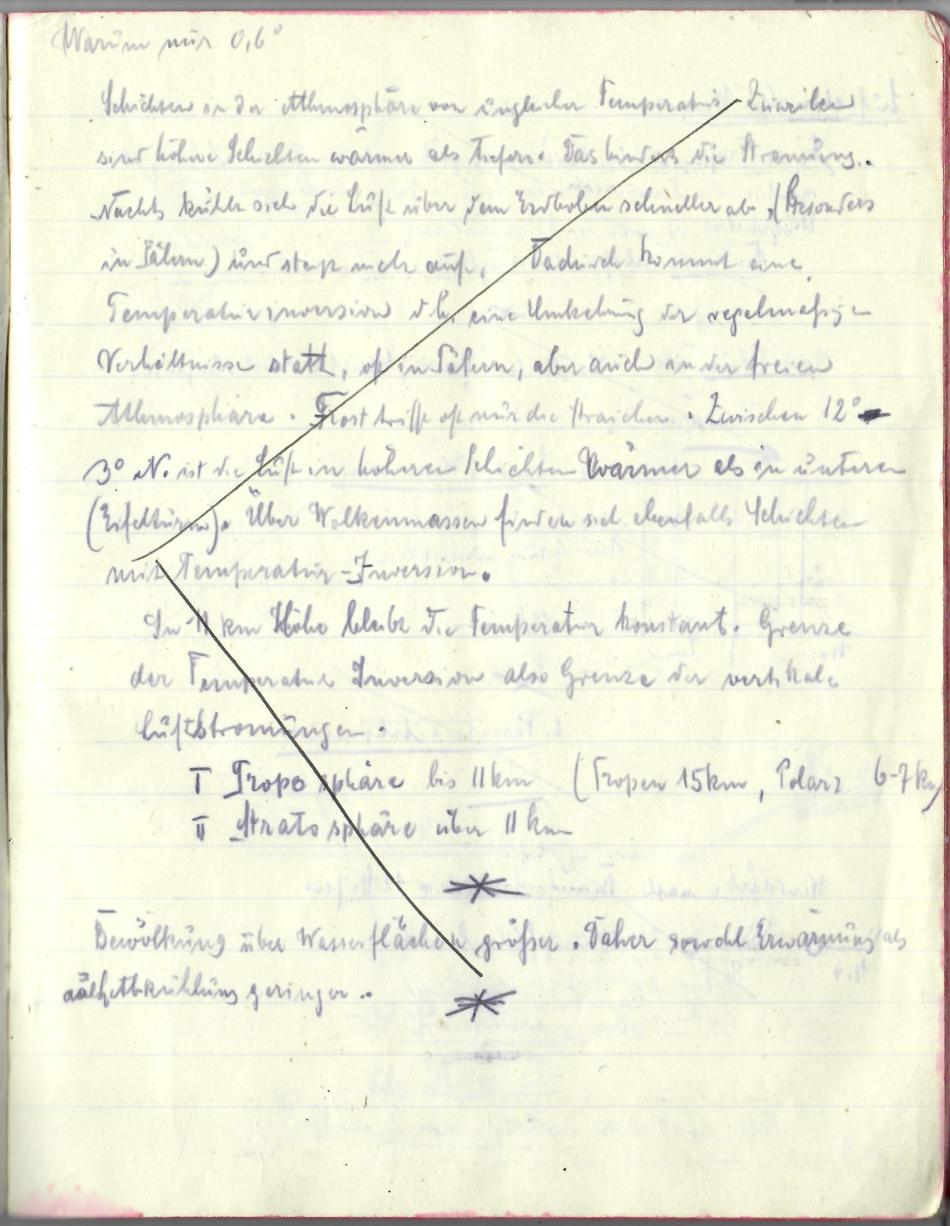 Warum nur 0,6°
Schichten in der Athmosphäre von ungleicher Temperatur. Zuweilen
sind höhere Schichten wärmer als tiefere. Das hindert die Stromung.
Nachts kühlt sich die Luft über dem Erdboden schneller ab, (Besonders
in Tälern) und steigt nicht auf. Dadurch kommt eine
Temperaturinversion d.h. eine Umkehung der regelmäßigen
Verhältnisse statt, oft in Tälern, aber auch in der freien
Athmosphäre. Frost trifft oft nur die Straücher. Zwischen 12°
3° N. ist die Luft in höheren Schichten Wärmer als in unteren
(Eifelturm). Über Wolkenmassen finden sich ebenfalls Schichten
mit Temperatur-Inversion.
In 11 km Höhe bleibt die Temperatur konstant. Grenze
der Temperatur Inversion also Grenze der vertikale
Luftstromungen.
I Troposphäre bis 11km (Tropen 15km, Polar: 6-7km)
II Stratosphäre über 11km
Bewölkung über Wasserflächen größer. Daher sowohl Erwärmung als
Abkühlung geringer..